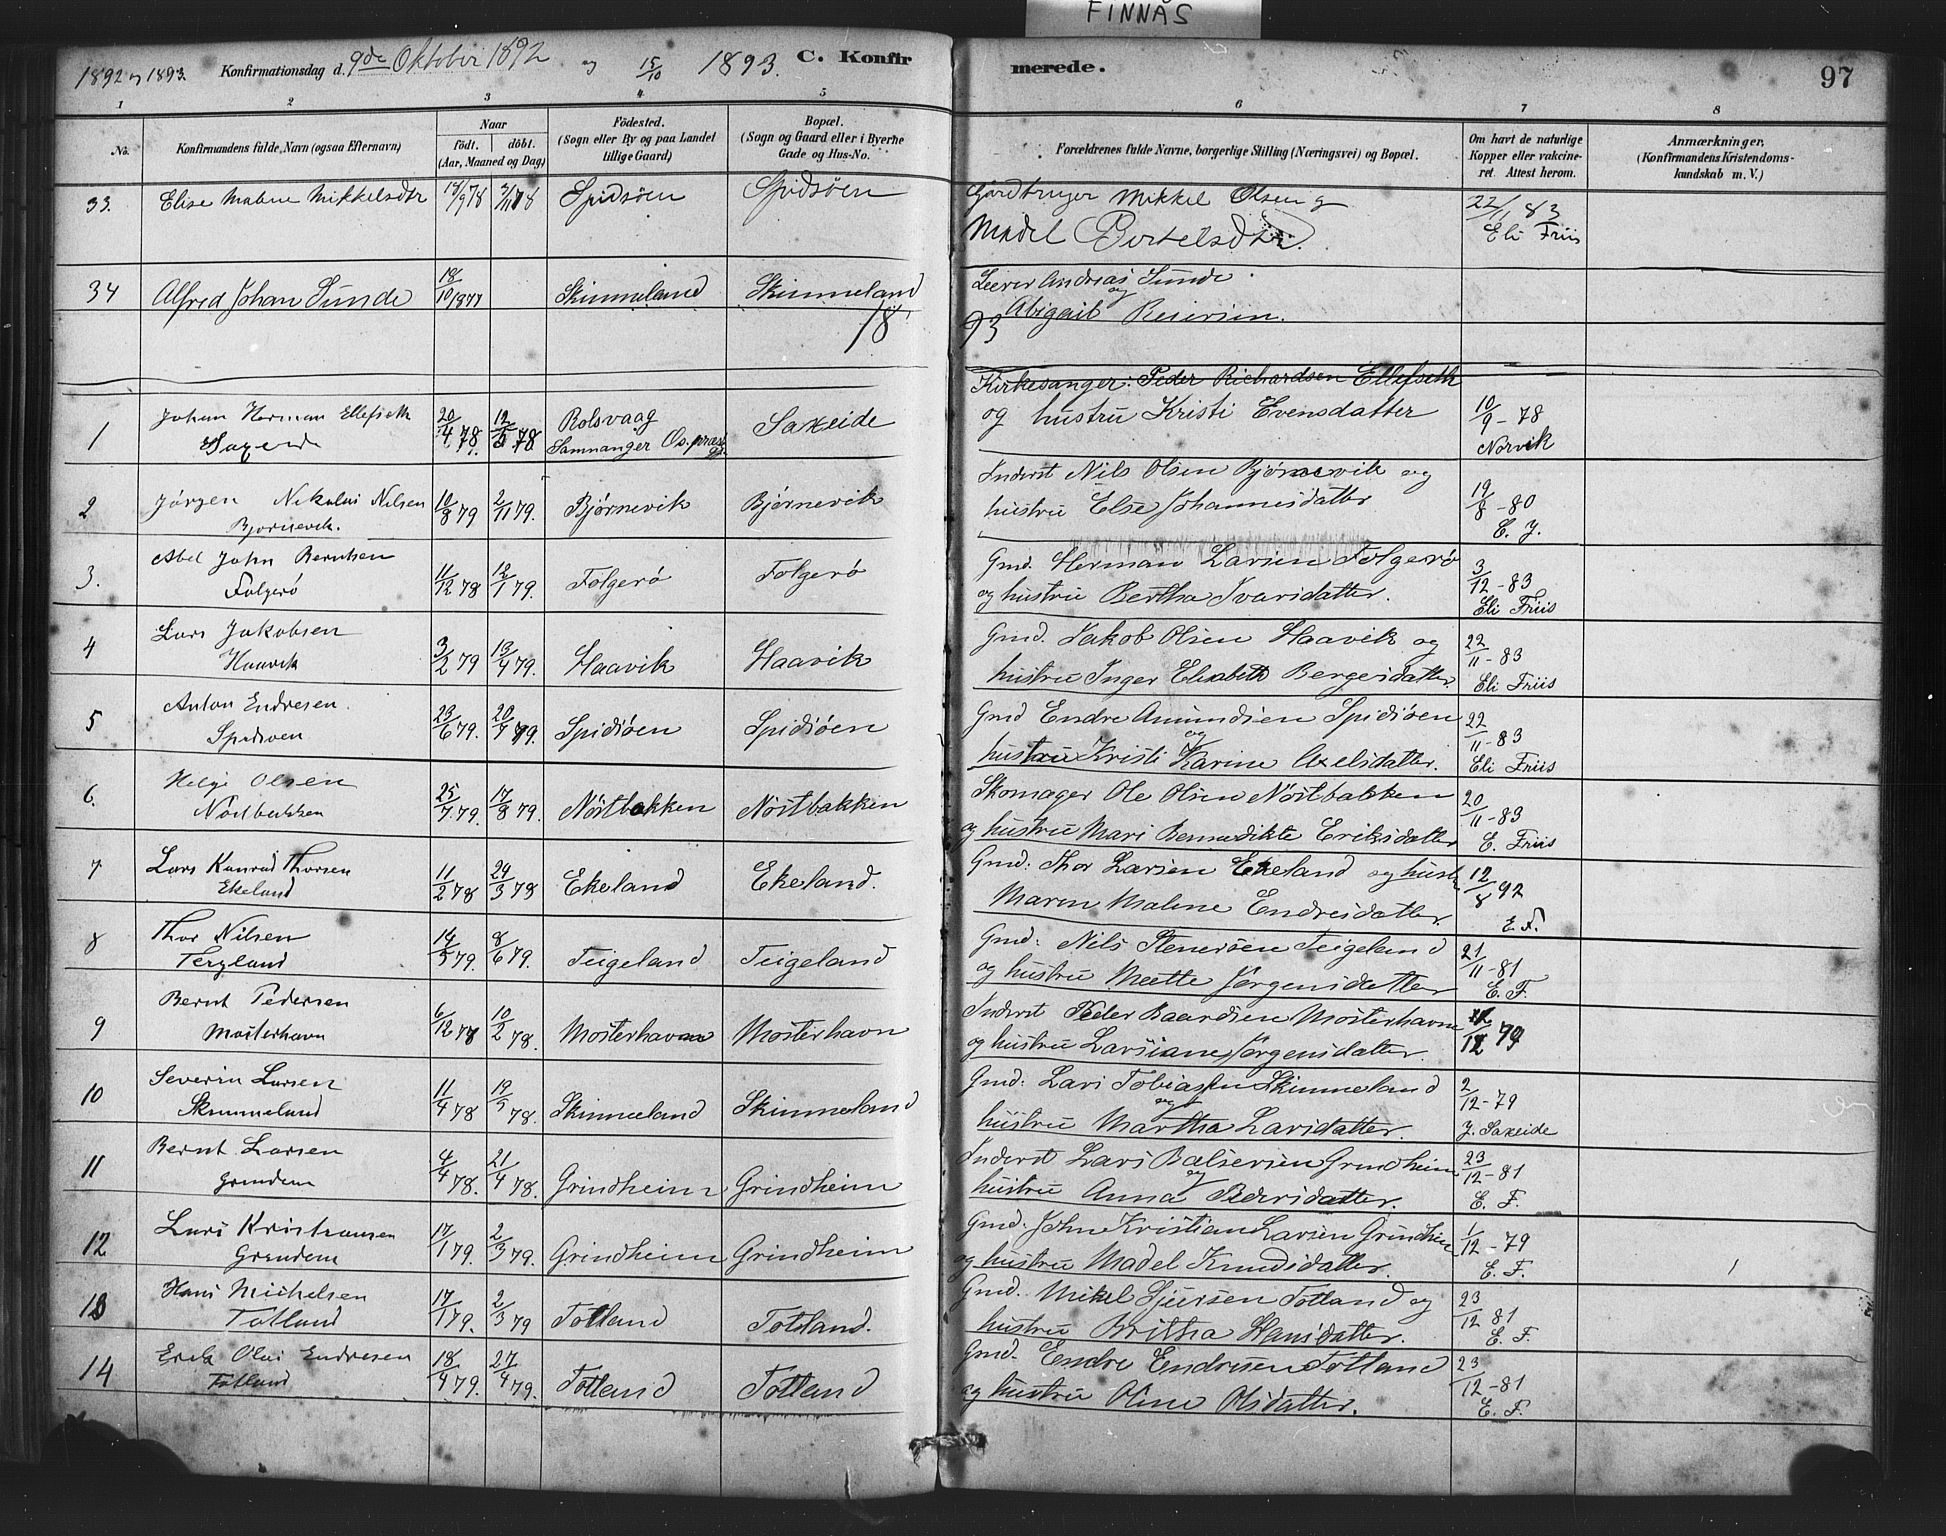 FINNÅS
1892 og 1893. Konfirmationsdag d. 9de Oktober 1892 og 15/10 1893. C. Konfirmerede. 97
1 2 3 4 5 6 7 8
No. Konfirmandens fulde Navn (ogsaa Efternavn)
Naar
födt. döbt.
(Aar, Maaned og Dag)
Födested.
(Sogn eller By og paa Landet
tillige Gaard)
Bopæl.
(Sogn og Gaard eller i Byerne
Gade og Hus-No.
Forældrenes fulde Navne, borgerlige Stilling (Næringsvei) og Bopæl.
Om havt de naturlige
Kopper eller vakcine-
ret. Attest herom.
Anmærkninger,
(Konfirmandens Kristendoms-
kundskab m. V.)
33. Elise Malene Mikkelsdtr Spidsöen Spidsöen Mikkel Olsen og 22/11 83
Madel Bertelsdtr. Eli Friis
34 Alfred Johan Sunde 18/10 1877 Skimmeland Skimmeland Andreas Sunde
og Abigail
18 93
1 Johan Herman Ellefseth 20/4 78. 12/5 78 Rolsvaag Saxeide Kirkesanger: Peder Richardsen Ellefseth
Samnanger Os. præst og hustru Kristi Evensdatter 10/9-78
Norvik
2 Jörgen Nikolai Nilsen 10/8 79 2/11 79. Bjørnevik Bjørnevik Inderst Nils Olsen Bjørnevik og 19/8-80
Bjørnevik. hustru Else Johannesdatter
3. Abel John Berntsen 11/12 78 12/1 79. Folgerö Folgerö Gmd. Herman Larsen Folgerö 3/12-83
Folgerö og hustru Bertha Ivarsdatter. Eli Friis
4 Lars Jakobsen 3/2 79 13/4 79. Haavik Haavik Gmd. Jakob Olsen Haavik og 22/11-83
Haavik hustru Inger Elisabeth Bergesdatter. Eli Friis
5 Anton Endresen 23/6 79. 20/9 79. Spidsöen Spidsöen Gmd Endre Amundsen Spidsöen 22/11-83
Spidsöen hustru Kristi og Karine Axelsdatter. Eli Friis
6. Helge Olsen 25/7. 79. 17/8 79. Nöstbakken Nöstbakken Skomager Ole Olsen Nöstbakken 20/11-83
Nöstbakken og hustru Mari Bernedikte Eriksdatter E. Friis
7 Lars Konrad Thorsen 11/2 78 24/3 78 Ekeland Ekeland. Gmd: Thor Larsen Ekeland og hustr 12/8 92
Ekeland Maren Malene Endresdatter. E. F.
8 Thor Nilsen 14/5 79. 8/6 79. Teigeland Teigeland Gmd: Nils Stenersen Teigeland 21/11-81
og hustru Mette Jörgensdatter E. F.
9 Bernt Pedersen 6/12 10/2 78. Mosterhavn Mosterhavn Inderst Peder Baardsen Mosterhavn 79
Mosterhavn og hustru Larsiane Jörgensdatter.
10 Severin Larsen 11/4 78 19/5 78. Skimmeland Skimmeland Gmd: Lars Tobiassen Skimmeland 2/12-79
Skimmeland hustru og Martha Larsdatter. J. Saxeide
11 Bernt Larsen 4/4 78. 21/4 78. Grindheim Grindheim Inderst Lars Bælsersen Grindheim 23/12-81
Grindem hustru og Anna Pedersdatter. E. F.
12 Lars Kristiansen 17/1 79. 2/3 79. Grindheim Grindheim Gmd. John Kristian Larsen Grindheim 1/12-79
Grindem og hustru Madel Knudsdatter. E. F.
13 Hans Mickelsen 17/1 79. 2/3 79 Totland Totland. Gmd. Mikel Sjursen Totland og 23/12 81
Totland hustru Britha Hansdatter. E. F.
14 Erik Olai Endresen 18/4 79. 27/4 79. Totland Totland Gmd. Endre Endresen Totland 23/12-81
Totland og hustru Oline Olsdatter. E. F.